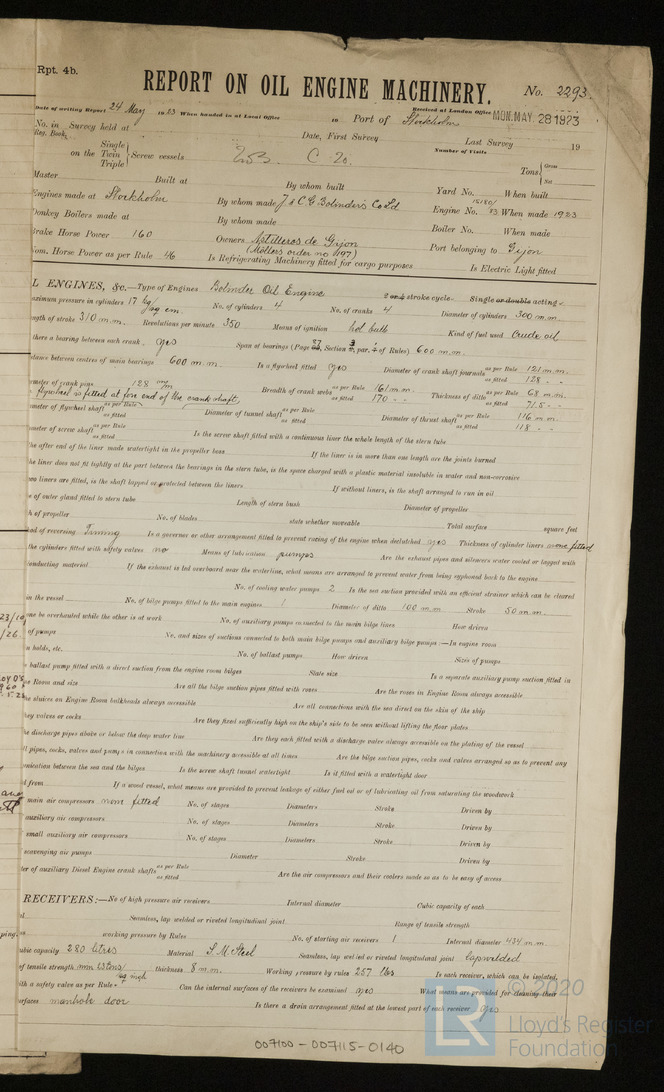 Rpt. 4b.
REPORT ON OIL ENGINE MACHINERY.
No. 2293.
Date of writing Report 24 May 1923 When handed in at Local Office 19 Port of Stockholm Received at London Office MON. MAY. 28 1923
No. in Survey held at Date, First Survey Last Survey 19
Reg. Book. Number of Visits
on the Single Twin Triple Screw vessels Tons Gross Net
Master Built at By whom built Yard No. When built
Engines made at Stockholm By whom made J & C G Bolinders Co Ld Engine No. When made 1923
Donkey Boilers made at By whom made Boiler No. When made
Brake Horse Power 160 Owners Astilleros de Gijon Port belonging to Gijon
(Mölters order no 1197)
Nom. Horse Power as per Rule 46 Is Refrigerating Machinery fitted for cargo purposes Is Electric Light fitted
L ENGINES, &c.—Type of Engines Bolinder Oil Engine 2 or 4 stroke cycle Single or double acting
maximum pressure in cylinders 17 kg/sq cm No. of cylinders 4 No. of cranks 4 Diameter of cylinders 300 m.m.
length of stroke 310 m.m. Revolutions per minute 350 Means of ignition hot bulb Kind of fuel used Crude oil
there a bearing between each crank yes Span of bearings (Page , Section 3, par. of Rules) 600 m.m.
distance between centres of main bearings 600 m.m. Is a flywheel fitted yes Diameter of crank shaft journals as per Rule 121 m.m. as fitted 128 - -
diameter of crank pins 128 m/m Breadth of crank webs as per Rule 161 m.m. as fitted 170 - - Thickness of ditto as per Rule 68 m.m. as fitted 71.5 - -
flywheel is fitted at fore end of the crank shaft.
diameter of flywheel shaft as per Rule as fitted Diameter of tunnel shaft as per Rule as fitted Diameter of thrust shaft as per Rule 116 m.m. as fitted 118 - -
diameter of screw shaft as per Rule as fitted Is the screw shaft fitted with a continuous liner the whole length of the stern tube
the after end of the liner made watertight in the propeller boss If the liner is in more than one length are the joints burned
the liner does not fit tightly at the part between the bearings in the stern tube, is the space charged with a plastic material insoluble in water and non-corrosive
two liners are fitted, is the shaft lapped or protected between the liners If without liners, is the shaft arranged to run in oil
of outer gland fitted to stern tube Length of stern bush Diameter of propeller
h of propeller No. of blades state whether moveable Total surface square feet
od of reversing Timing Is a governor or other arrangement fitted to prevent racing of the engine when declutched yes Thickness of cylinder liners none fitted
the cylinders fitted with safety valves no Means of lubrication pumps Are the exhaust pipes and silencers water cooled or lagged with
conducting material If the exhaust is led overboard near the waterline, what means are arranged to prevent water from being syphoned back to the engine
No. of cooling water pumps 2 Is the sea suction provided with an efficient strainer which can be cleared
in the vessel No. of bilge pumps fitted to the main engines 1 Diameter of ditto 100 m.m. Stroke 50 m.m.
one be overhauled while the other is at work No. of auxiliary pumps connected to the main bilge lines How driven
of pumps No. and sizes of suctions connected to both main bilge pumps and auxiliary bilge pumps:—In engine room
n holds, etc. No. of ballast pumps How driven Sizes of pumps
ballast pump fitted with a direct suction from the engine room bilges State size Is a separate auxiliary pump suction fitted in
ne Room and size Are all the bilge suction pipes fitted with roses Are the roses in Engine Room always accessible
he sluices on Engine Room bulkheads always accessible Are all connections with the sea direct on the skin of the ship
hey valves or cocks Are they fixed sufficiently high on the ship's side to be seen without lifting the floor plates
he discharge pipes above or below the deep water line Are they each fitted with a discharge valve always accessible on the plating of the vessel
ll pipes, cocks, valves and pumps in connection with the machinery accessible at all times Are the bilge suction pipes, cocks and valves arranged so as to prevent any
munication between the sea and the bilges Is the screw shaft tunnel watertight Is it fitted with a watertight door
d from If a wood vessel, what means are provided to prevent leakage of either fuel oil or of lubricating oil from saturating the woodwork
main air compressors none fitted No. of stages Diameters Stroke Driven by
auxiliary air compressors No. of stages Diameters Stroke Driven by
small auxiliary air compressors No. of stages Diameters Stroke Driven by
scavenging air pumps Diameter Stroke Driven by
ter of auxiliary Diesel Engine crank shafts as per Rule as fitted Are the air compressors and their coolers made so as to be easy of access
RECEIVERS:—No of high pressure air receivers Internal diameter Cubic capacity of each
Seamless, lap welded or riveted longitudinal joint Range of tensile strength
working pressure by Rules No. of starting air receivers 1 Internal diameter 434 m.m.
ubic capacity 280 litres Material S.M. Steel Seamless, lap welded or riveted longitudinal joint Lapwelded
of tensile strength thickness 8 m.m. Working pressure by rules 257 lbs Is each receiver, which can be isolated,
ith a safety valve as per Rule Can the internal surfaces of the receivers be examined yes What means are provided for cleaning their
urfaces manhole door Is there a drain arrangement fitted at the lowest part of each receiver yes
007100 - 007115 - 0140
© 2020
LR
Lloyd's Register
Foundation